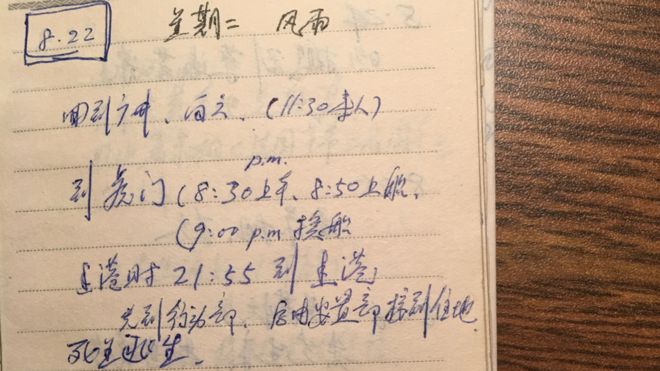 8.22 星期二 风雨
回到广州、白云、(11:30来人)
p.m.
到虎门(8:30上车、8:50上船、
(9:00 p.m 换船
港时 21:55 到 港
先到行动部、后由安置部接到住地
死里逃生.